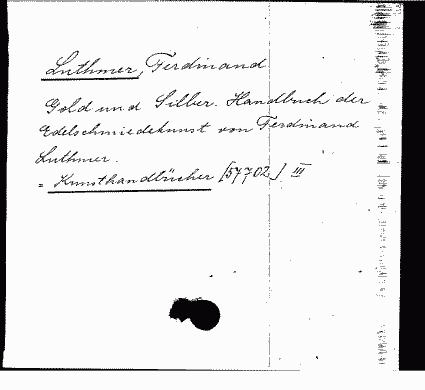 Luthmer, Ferdinand
Gold und Silber. Handbuch der
Edelschmiedekunst von Ferdinand
Luthmer.
= Kunsthandbücher [57702] III